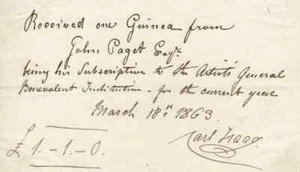 Received one Guinea from
John Paget Esqre
being his Subscription to the Artists' General
Benevolent Institution - for the current year
March 18th 1863
£1.-1-0.
Carl Haag